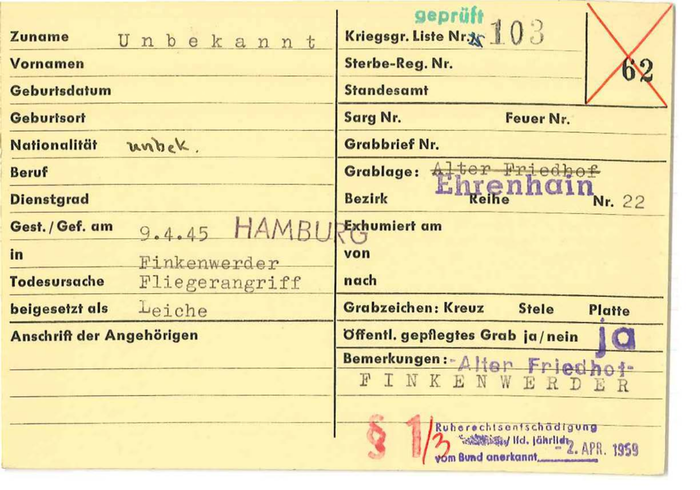 Zuname Unbekannt
Vornamen
Geburtsdatum
Geburtsort
Nationalität unbek.
Beruf
Dienstgrad
Gest./Gef. am 9.4.45 HAMBURG
in Finkenwerder
Todesursache Fliegerangriff
beigesetzt als Leiche
Anschrift der Angehörigen
geprüft
Kriegsgr. Liste Nr. 103
62
Sterbe-Reg. Nr.
Standesamt
Sarg Nr. Feuer Nr.
Grabbrief Nr.
Grablage: Alter Friedhof
Ehrenhain
Bezirk Reihe Nr. 22
Exhumiert am
von
nach
Grabzeichen: Kreuz Stele Platte
Öffentl. gepflegtes Grab ja/nein ja
Bemerkungen: -Alter Friedhof-
FINKENWERDER
§ 1/3
Ruherechtsentschädigung
/ lfd. jährlich
vom Bund anerkannt - 2. APR. 1959